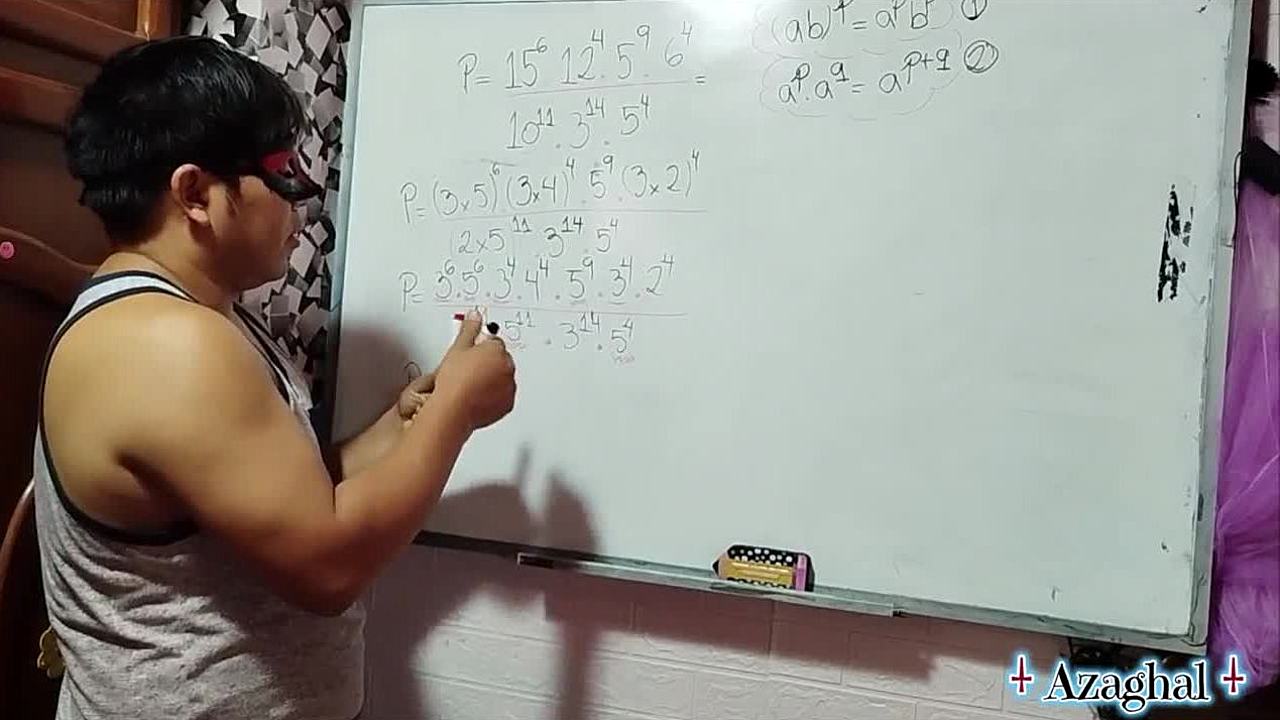 P = 15⁶ 12⁴ . 5⁹ . 6⁴ =
10¹¹ . 3¹⁴ . 5⁴
(ab)ᵖ = aᵖbᵖ ①
aᵖ . a^q = a^(p+q) ②
P = (3×5)⁶ (3×4)⁴ . 5⁹ . (3×2)⁴
(2×5)¹¹ . 3¹⁴ . 5⁴
P = 3⁶ . 5⁶ . 3⁴ . 4⁴ . 5⁹ . 3⁴ . 2⁴
5¹¹ . 3¹⁴ . 5⁴
Azaghal